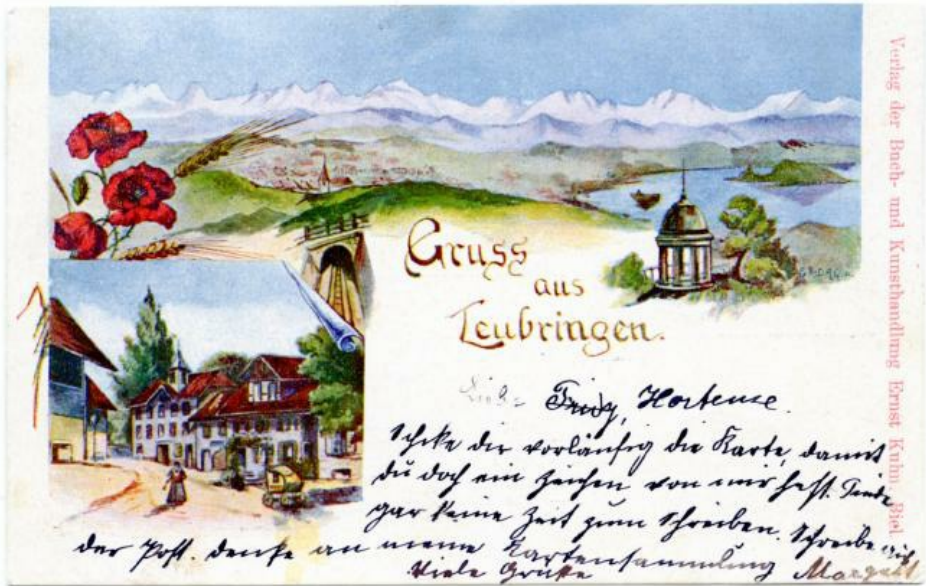 Gruss
aus
Leubringen.
Verlag der Buch- und Kunsthandlung Ernst Kuhn, Biel.
Hortense.
Schike dir vorläufig die Karte, damit
du doch ein Zeichen von mir hast. Finde
gar keine Zeit zum Schreiben. Schreibe
der Post. Denke an meine Kartensammlung
Viele Grüsse